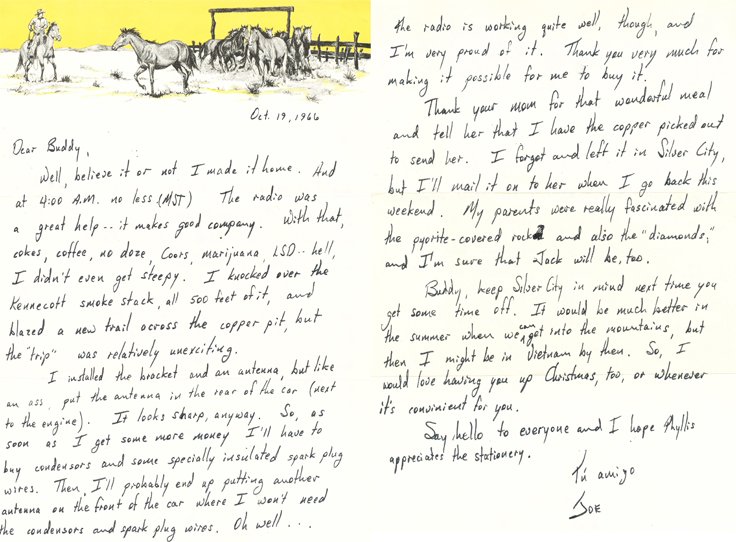 Oct. 19, 1966
Dear Buddy,
Well, believe it or not I made it home. And
at 4:00 A.M. no less (MST) The radio was
a great help -- it makes good company. With that,
cokes, coffee, no doze, Coors, marijuana, LSD -- hell,
I didn't even get sleepy. I knocked over the
Kennecott smoke stack, all 500 feet of it, and
blazed a new trail across the copper pit, but
the "trip" was relatively unexciting.
I installed the bracket and an antenna, but like
an ass, put the antenna in the rear of the car (next
to the engine). It looks sharp, anyway. So, as
soon as I get some more money I'll have to
buy condensors and some specially insulated spark plug
wires. Then, I'll probably end up putting another
antenna on the front of the car where I won't need
the condensors and spark plug wires. Oh well . . .
the radio is working quite well, though, and
I'm very proud of it. Thank you very much for
making it possible for me to buy it.
Thank your mom for that wonderful meal
and tell her that I have the copper picked out
to send her. I forgot and left it in Silver City,
but I'll mail it on to her when I go back this
weekend. My parents were really fascinated with
the pyorite-covered rock and also the "diamonds,"
and I'm sure that Jack will be, too.
Buddy, keep Silver City in mind next time you
get some time off. It would be much better in
the summer when we can get into the mountains, but
then I might be in Vietnam by then. So, I
would love having you up Christmas, too, or whenever
it's convinient for you.
Say hello to everyone and I hope Phyllis
appreciates the stationery.
Tú amigo
Joe